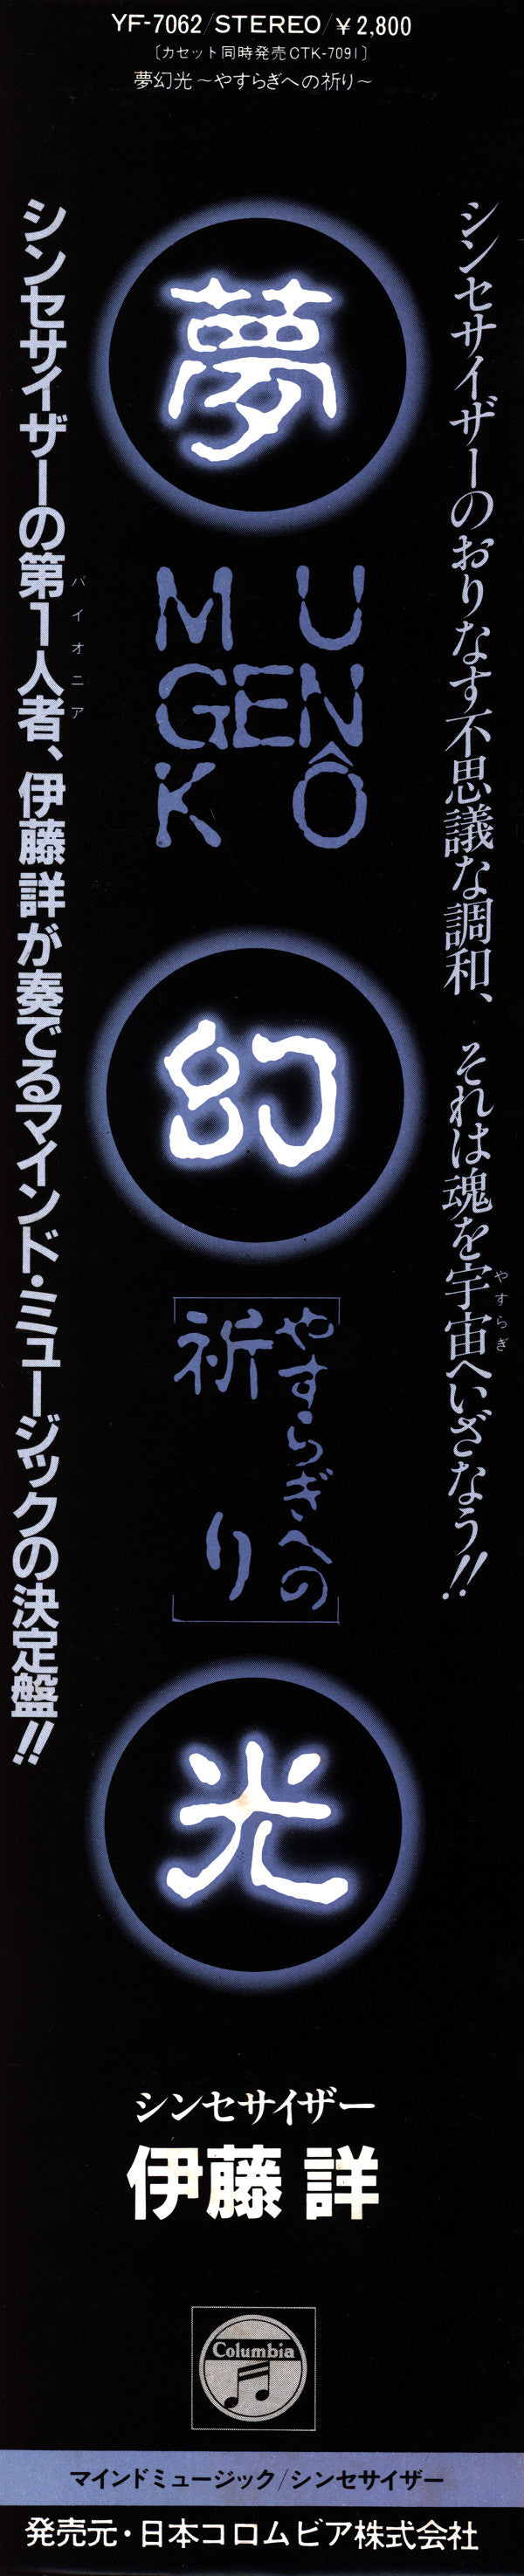 YF-7062/STEREO/￥2,800
〔カセット同時発売CTK-7091〕
夢幻光～やすらぎへの祈り～
シンセサイザーのおりなす不思議な調和、それは魂を宇宙へいざなう!!
やすらぎ
夢
MU
GEN
KÔ
幻
やすらぎへの
祈り
光
シンセサイザーの第1人者、伊藤 詳が奏でるマインド・ミュージックの決定盤!!
パイオニア
シンセサイザー
伊藤 詳
Columbia
マインドミュージック/シンセサイザー
発売元・日本コロムビア株式会社